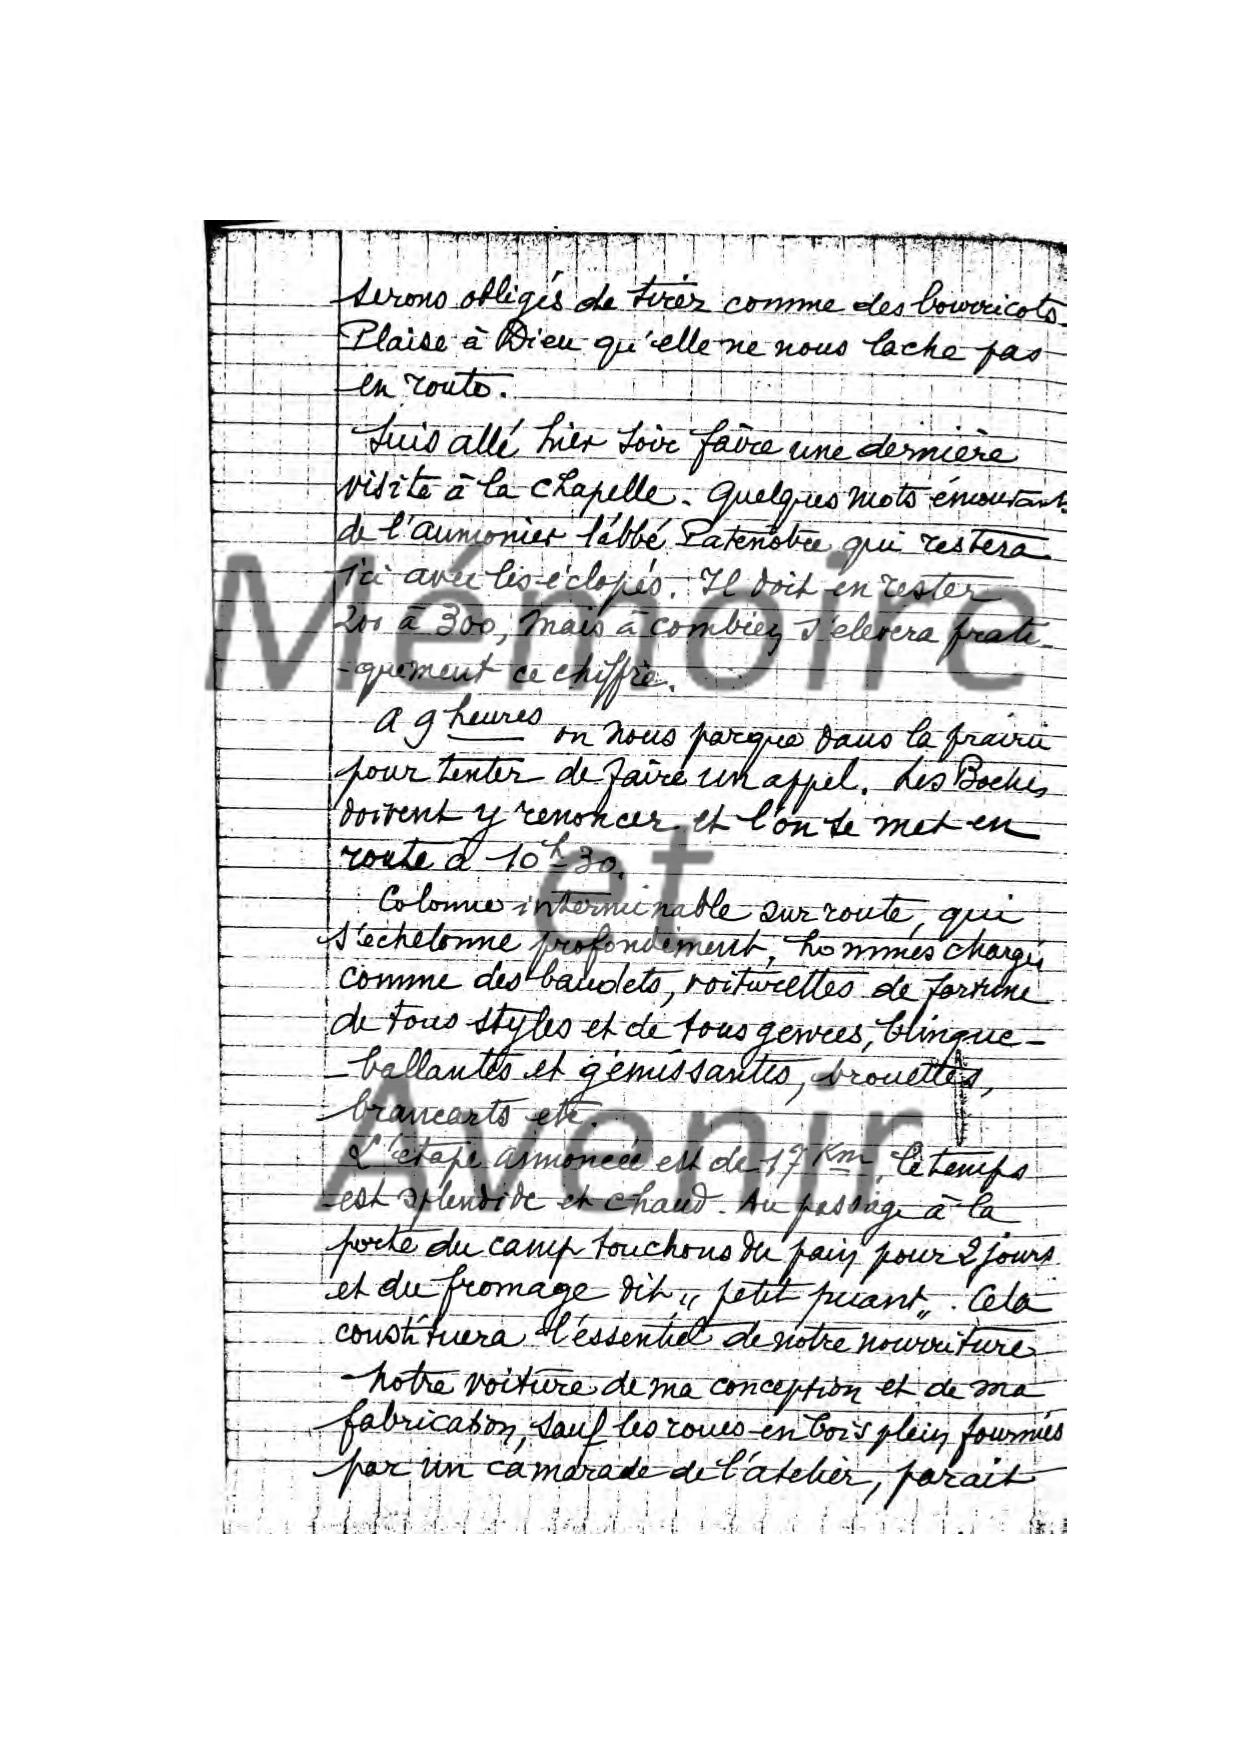 serons obligés de tirer comme des bourricots.
Plaise à Dieu qu'elle ne nous lache pas
en route.
Suis allé hier soir faire une dernière
visite à la chapelle. Quelques mots émouvants
de l'aumonier l'abbé Patenôtre qui restera
ici avec les éclopés. Il doit en rester
200 à 300, mais à combien s'elevera prati-
-quement ce chiffre.
A 9 heures on nous parque dans la prairie
pour tenter de faire un appel. Les Boches
doivent y renoncer et l'on se met en
route à 10h30.
Colonne interminable sur route, qui
s'echelonne profondément, hommes chargés
comme des baudets, voiturettes de fortune
de tous styles et de tous genres, blingue-
-ballantes et gémissantes, brouettes,
brancarts etc.
L'étape annoncée est de 17 Km, le temps
est splendide et chaud. Au passage à la
porte du camp touchons du pain pour 2 jours
et du fromage dit „ petit puant „. Cela
constituera l'éssentiel de notre nourriture
Notre voiture de ma conception et de ma
fabrication, sauf les roues en bois plein fournies
par un camarade de l'atelier, parait
Mémoire
et
Avenir